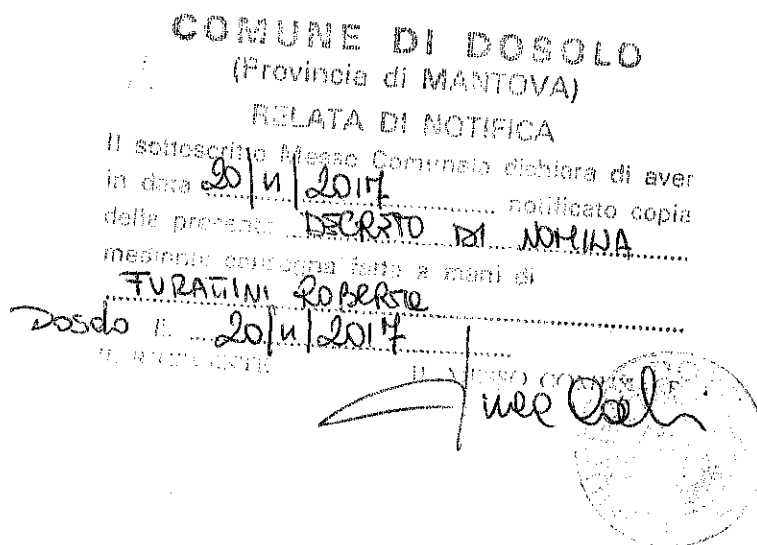 COMUNE DI DOSOLO
(Provincia di MANTOVA)
RELATA DI NOTIFICA
Il sottoscritto Messo Comunale dichiara di aver
in data 20/11/2017 notificato copia
della presente DECRETO DI NOMINA
mediante consegna fatta a mani di
Dosolo li 20/11/2017
IL RICEVENTE IL MESSO COMUNALE